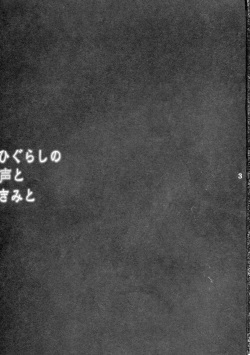 ひぐらしの
声と
きみと
3